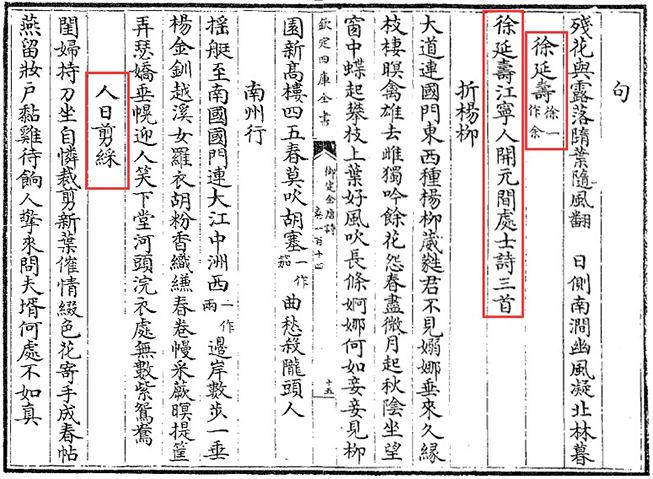 句
殘花與露落隋葉隨風翻　日側南澗幽風凝北林暮
徐延壽徐一作余
徐延壽江寧人開元間處士詩三首
折楊柳
大道連國門東西種楊柳葳蕤君不見嫋娜垂來久縁
枝棲暝禽雄去雌獨吟餘花怨春盡微月起秋陰坐望
窗中蝶起攀枝上葉好風吹長條婀娜何如妾妾見柳
欽定四庫全書
御定全唐詩
卷一百十四
十五
園新高樓四五春莫吹胡塞一作笳曲愁殺隴頭人
南州行
搖艇至南國國門連大江中洲西一作兩邊岸數步一垂
楊金釧越溪女羅衣胡粉香織縑春卷幔采蕨暝提筐
弄瑟嬌垂幌迎人笑下堂河頭浣衣處無數紫鴛鴦
人日剪綵
閨婦持刀坐自憐裁剪新葉催情綴色花寄手成春帖
燕留妝户黏雞待餉人擎來問夫壻何處不如真